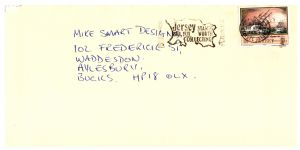 MIKE SMART DESIGN
102 FREDERICK ST,
WADDESDON
AYLESBURY,
BUCKS. HP18 0LX.
Jersey
WORTH
COLLECTING